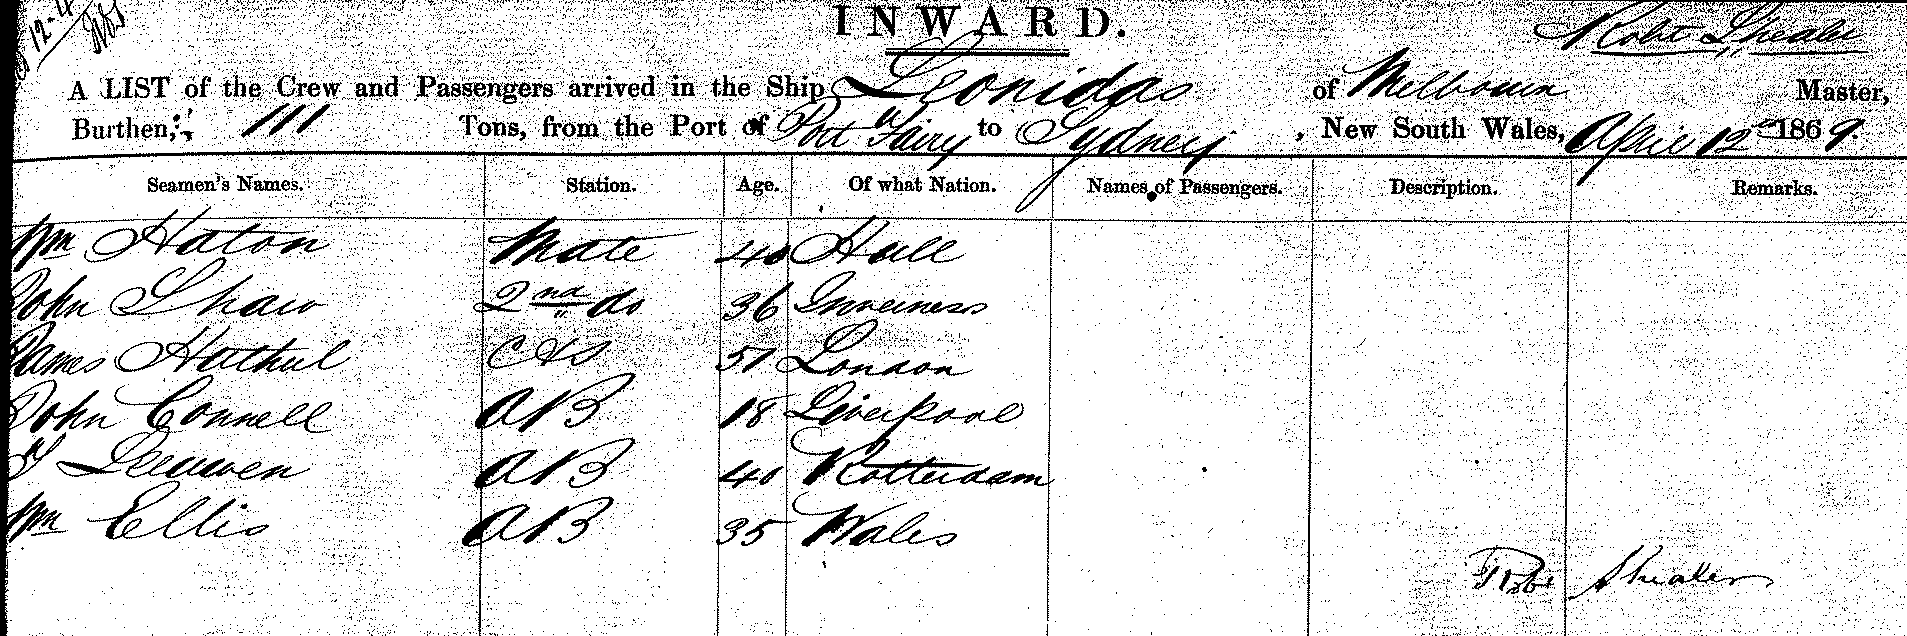 12-4
INWARD.
Robt Shealer
A LIST of the Crew and Passengers arrived in the Ship Leonidas of Melbourn Master,
Burthen, 111 Tons, from the Port of Port Fairy to Sydney, New South Wales, April 12th 1869.
Seamen's Names. Station. Age. Of what Nation. Names of Passengers. Description. Remarks.
Wm Haton Mate 40 Hull
John Shaw 2nd do 36 Inverness
James C&S 51 London
John Connell AB 18 Liverpool
Leeuwen AB 40 Rotterdam
Wm Ellis AB 35 Wales
Robt Shealer